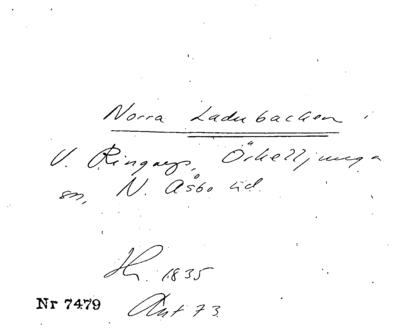 Norra Ladubacken
V. Ringarp, Örkelljunga
sn, N. Åsbo hd.
1835
Nr 7479 Ant 73